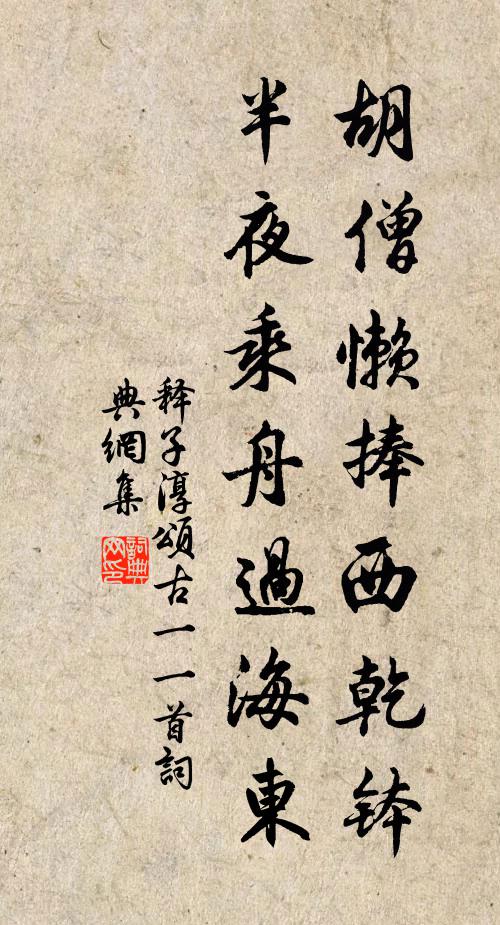 胡僧懶捧西乾鉢
半夜乘舟過海東
释子淳頌古一一首詞
典網集
詞典
网印